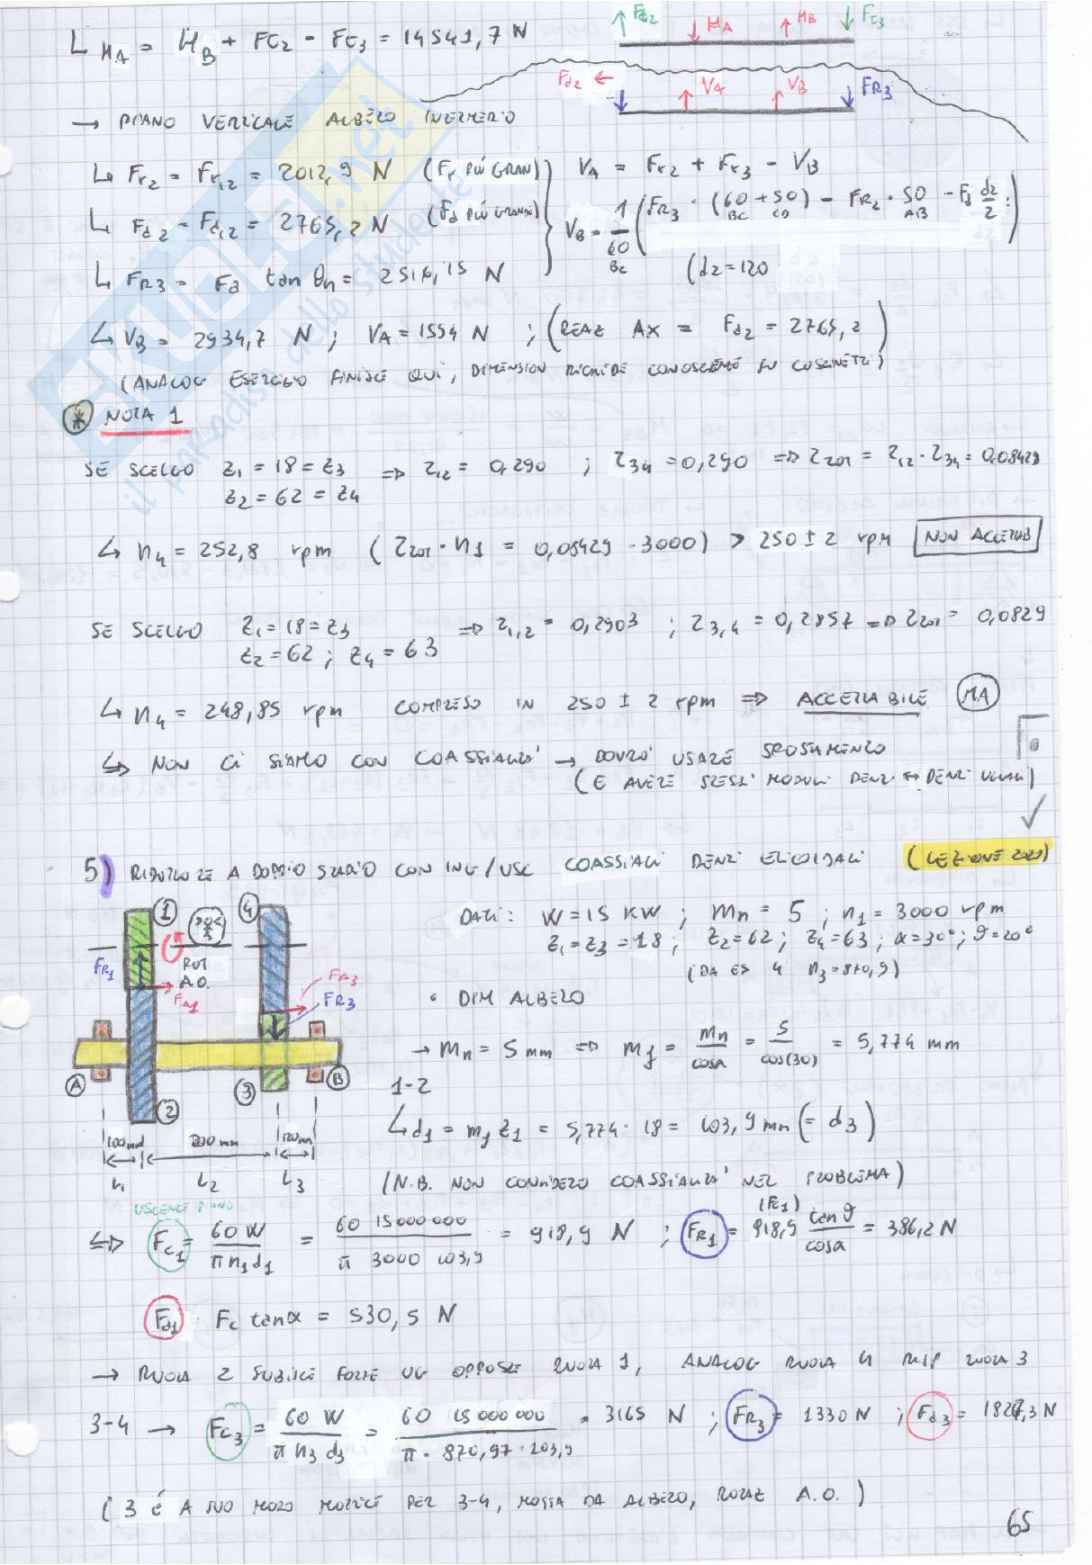 ↳ H_A = H_B + FC2 - FC3 = 14541,7 N
Fc2 H_A H_B Fc3
Fa2 ← V_A V_B FR3
→ PIANO VERTICALE ALBERO INTERMEDIO
↳ Fr2 = Fr12 = 2012,9 N (Fr PIÙ GRANDI) V_A = Fr2 + Fr3 - V_B
↳ Fa2 = Fa12 = 2765,2 N (Fa PIÙ GRANDI) V_B = 1/60 (FR3 · (60 + 50) - FR2 · 50 - Fa d2/2)
BC BC CD AB
↳ FR3 = Fa tan θn = 2516,15 N (d2=120
↳ V_B = 2934,7 N ; V_A = 1554 N ; (REAZ AX = Fa2 = 2765,2)
(ANALOG ESERCIZIO FINISCE QUI, DIMENSION RICHIEDE CONOSCENZE SU CUSCINETTI)
* NOTA 1
SE SCELGO Z1 = 18 = Z3 ⇒ τ12 = 0,290 ; τ34 = 0,290 ⇒ τTOT = τ12 · τ34 = 0,08429
Z2 = 62 = Z4
↳ n4 = 252,8 rpm (τTOT · n1 = 0,08429 · 3000) > 250 ± 2 rpm NON ACCETTAB
SE SCELGO Z1 = 18 = Z3 ⇒ τ1,2 = 0,2903 ; τ3,4 = 0,2857 ⇒ τTOT = 0,0829
Z2 = 62 ; Z4 = 63
↳ n4 = 248,85 rpm COMPRESO IN 250 ± 2 rpm ⇒ ACCETTABILE MA
↳ NON CI SIAMO CON COASSIALITÀ → DOVRÒ USARE SPOSTAMENTO
(E AVERE STESSI MODULI DENTI ↔ DENTI)
5) RIDUTTORE A DOPPIO STADIO CON ING/USC COASSIALI DENTI ELICOIDALI (LEZIONE 2020)
DATI: W = 15 KW ; mn = 5 ; n1 = 3000 rpm
Z1 = Z3 = 18 ; Z2 = 62 ; Z4 = 63 ; α = 30° ; ϑ = 20°
(DA ES 4 n3 = 870,9)
1 4 FR1 ROT A.O. FA1 FA3 FR3
A B 2 3
100 mm 200 mm 120 mm
L1 L2 L3
• DIM ALBERO
→ mn = 5 mm ⇒ mf = mn/cosα = 5/cos(30) = 5,774 mm
1-2
↳ d1 = mf z1 = 5,774 · 18 = 103,9 mm (= d3)
(N.B. NON CONSIDERO COASSIALITÀ NEL PROBLEMA)
USCENTE PIANO
⇒ FC1 = 60 W / π n1 d1 = 60 15000000 / π 3000 103,9 = 918,9 N ; FR1 = (FC1) 918,9 tanϑ/cosα = 386,2 N
Fa1 Fc tanα = 530,5 N
→ RUOTA 2 SUBISCE FORZE UG OPPOSTE RUOTA 1, ANALOG RUOTA 4 RISP RUOTA 3
3-4 → FC3 = 60 W / π n3 d3 = 60 15000000 / π · 870,97 · 103,9 = 3165 N ; FR3 = 1330 N ; Fa3 = 1827,3 N
(3 È A SUO MODO MOTRICE PER 3-4, MOSSA DA ALBERO, ROTAZ A.O.)
65